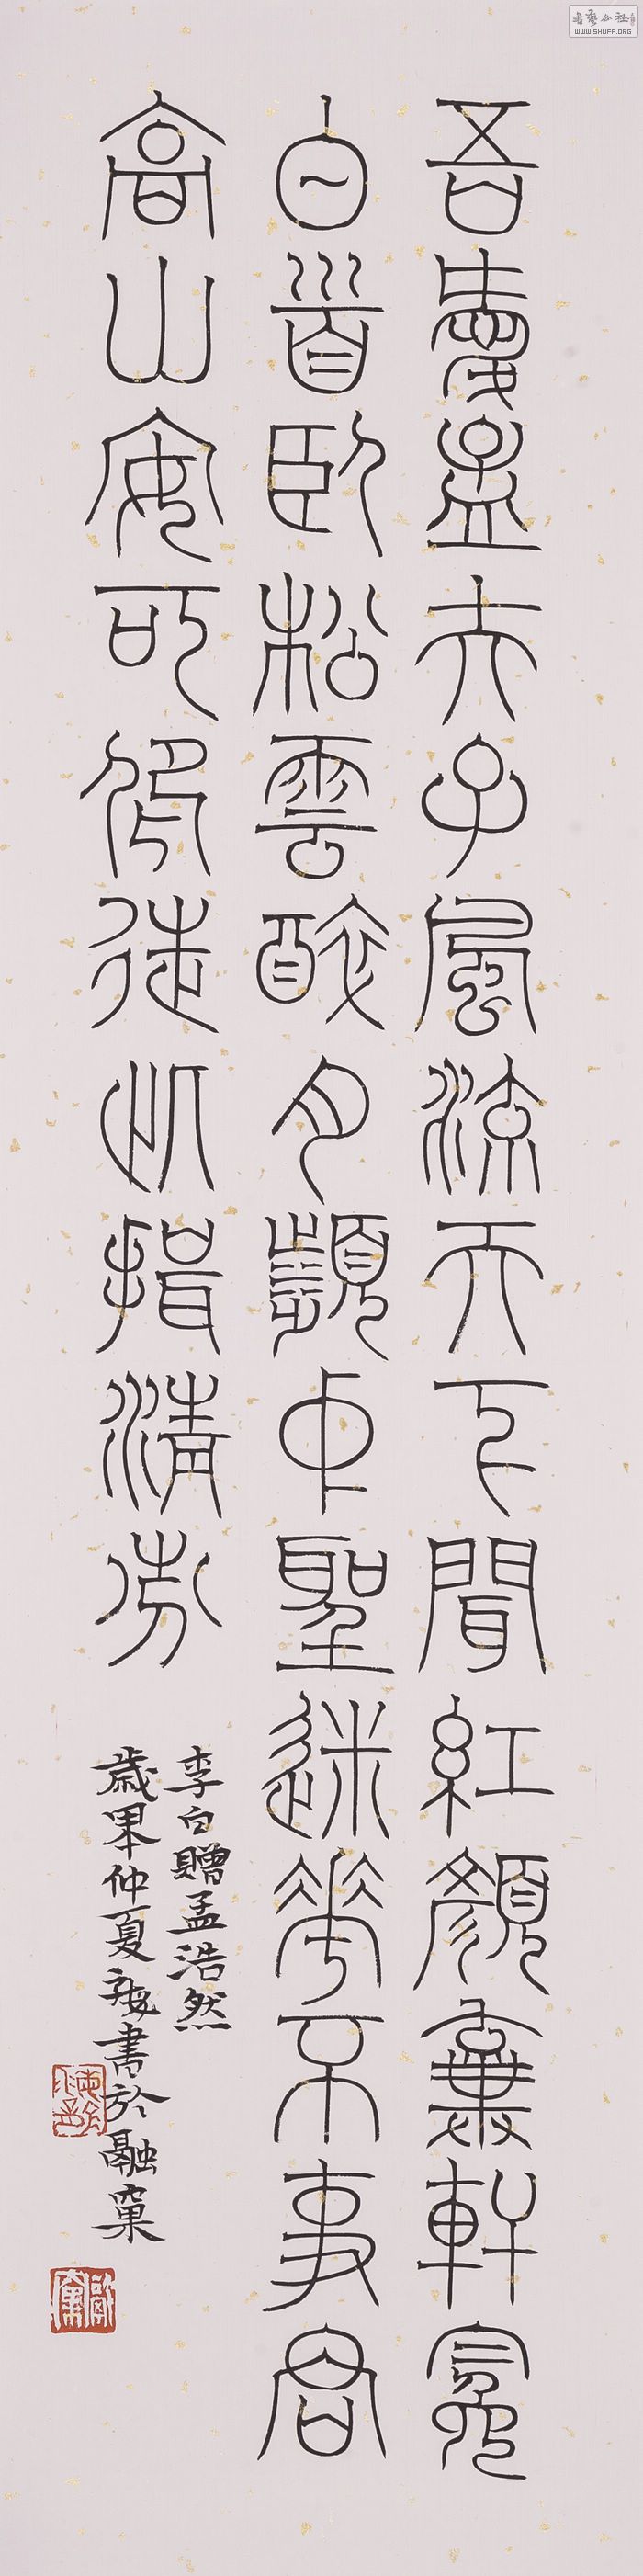 吾愛孟夫子風流天下聞紅顏棄軒冕
白首臥松雲醉月頻中聖迷花不事君
高山安可仰徒此揖清芬
李白贈孟浩然
歲仲夏書於融窠
WWW.SHUFA.ORG